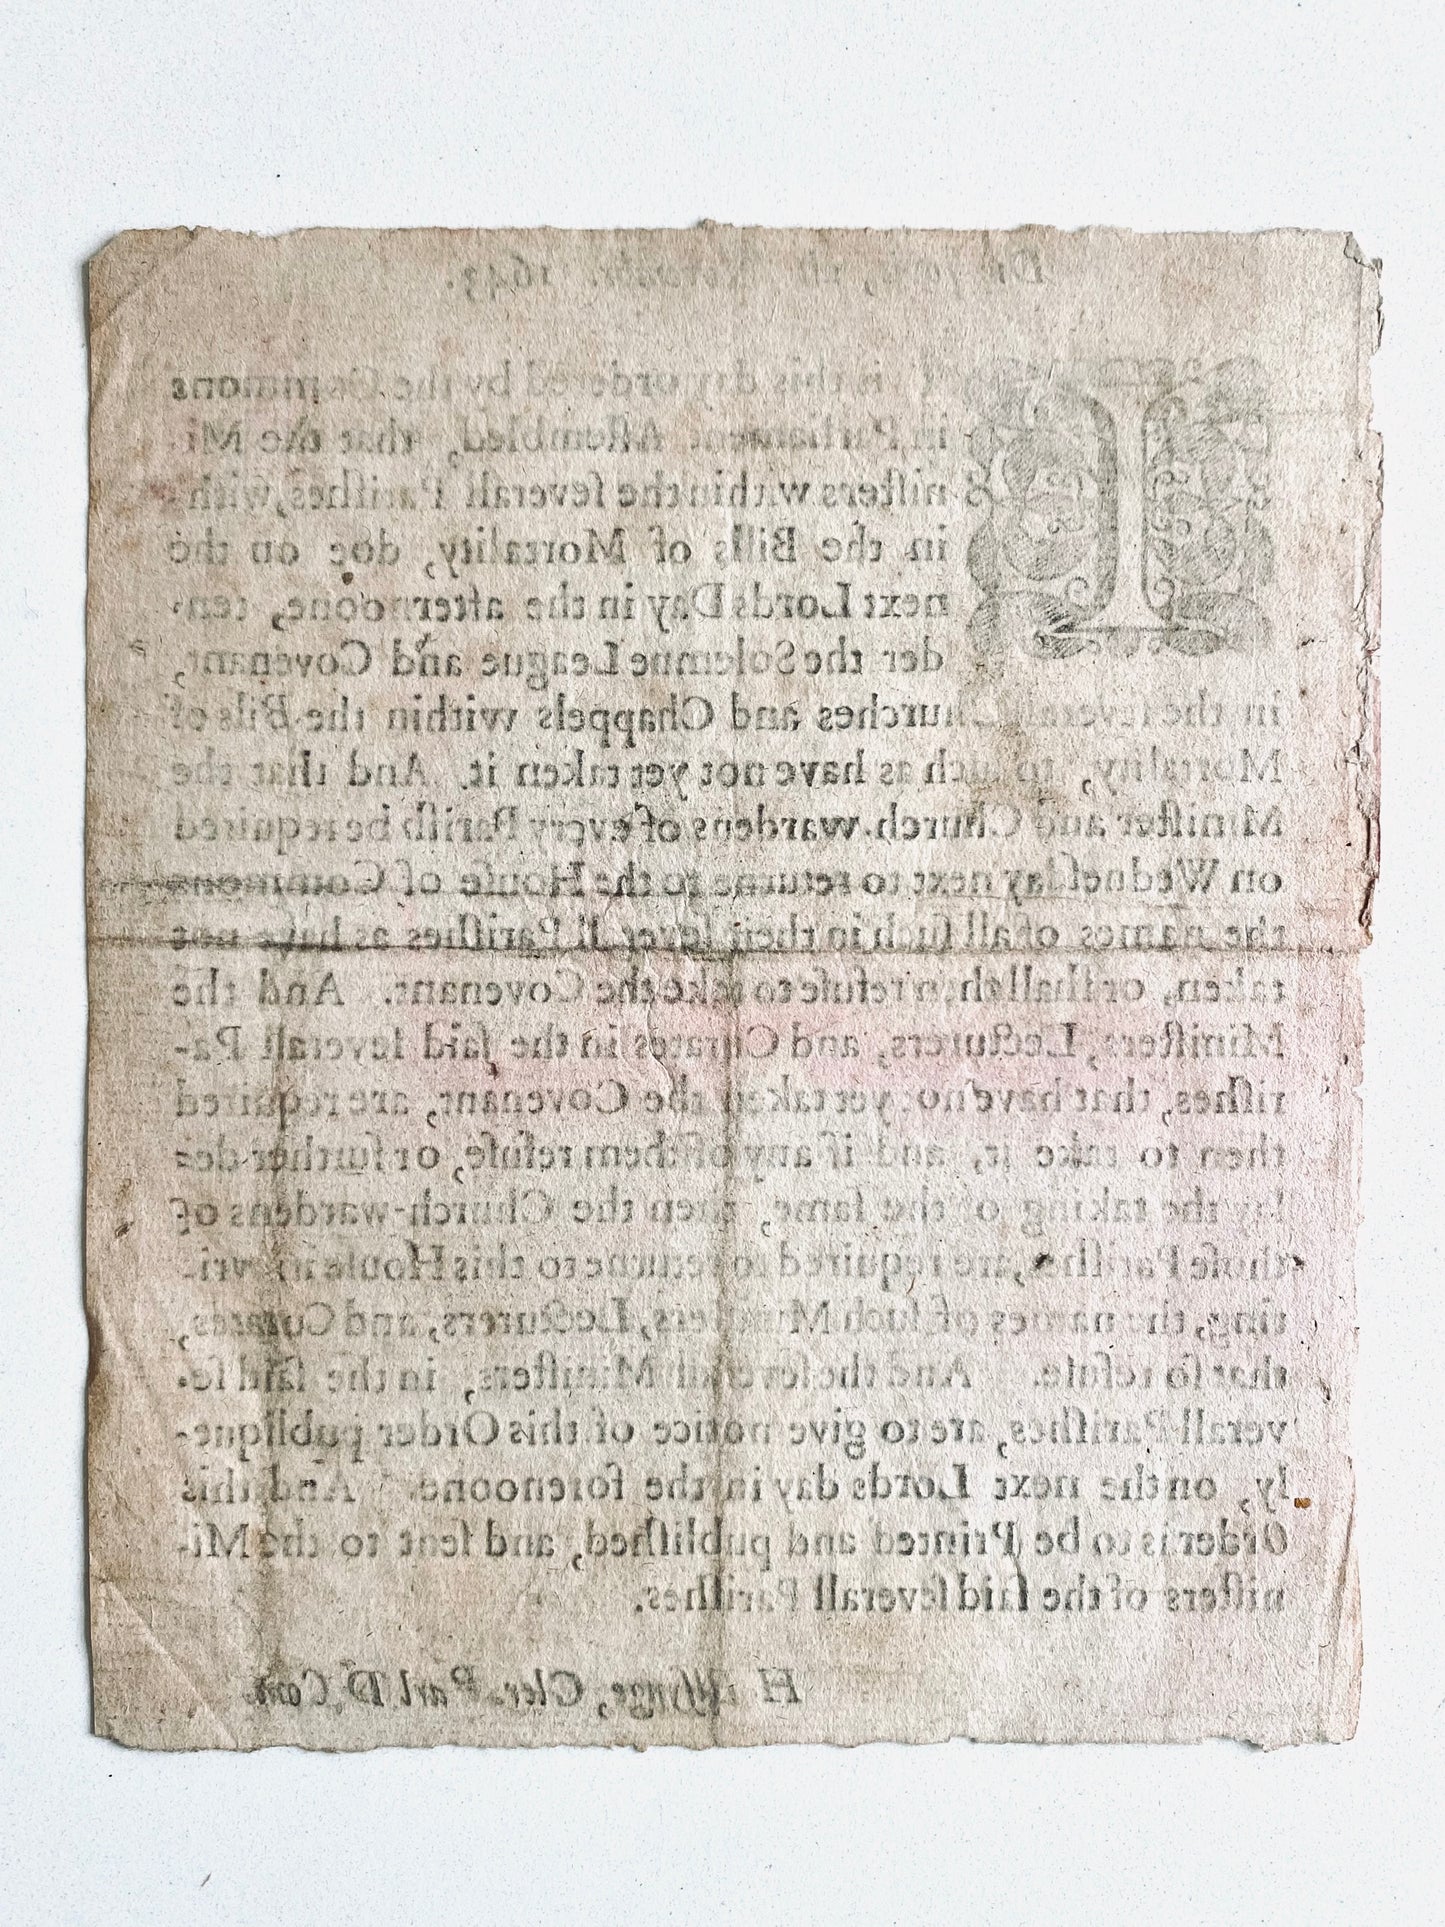 Die Jovis, Octobr. 1643.
IT is this day ordered by the Commons
in Parliament Assembled, that the Mi-
nisters within the severall Parishes, with-
in the Bills of Mortality, doe on the
next Lords Day in the afternoone, ten-
der the Solemne League and Covenant,
in the severall Churches and Chappels within the Bils of
Mortality, to such as have not yet taken it. And that the
Minister and Church-wardens of every Parish be required
on Wednesday next to returne to the House of Commons
the names of all such in their severall Parishes as have not
taken, or shall then refuse to take the Covenant. And the
Ministers, Lecturers, and Curates in the said severall Pa-
rishes, that have not yet taken the Covenant, are required
then to take it, and if any of them refuse, or further de-
lay the taking of the same, then the Church-wardens of
those Parishes, are required to returne to this House in wri-
ting, the names of such Ministers, Lecturers, and Curates,
that so refuse. And the severall Ministers, in the said se-
verall Parishes, are to give notice of this Order publique-
ly, on the next Lords day in the forenoone. And this
Order is to be Printed and published, and sent to the Mi-
nisters of the said severall Parishes.
H Elsynge, Cler. Parl. D. Com.